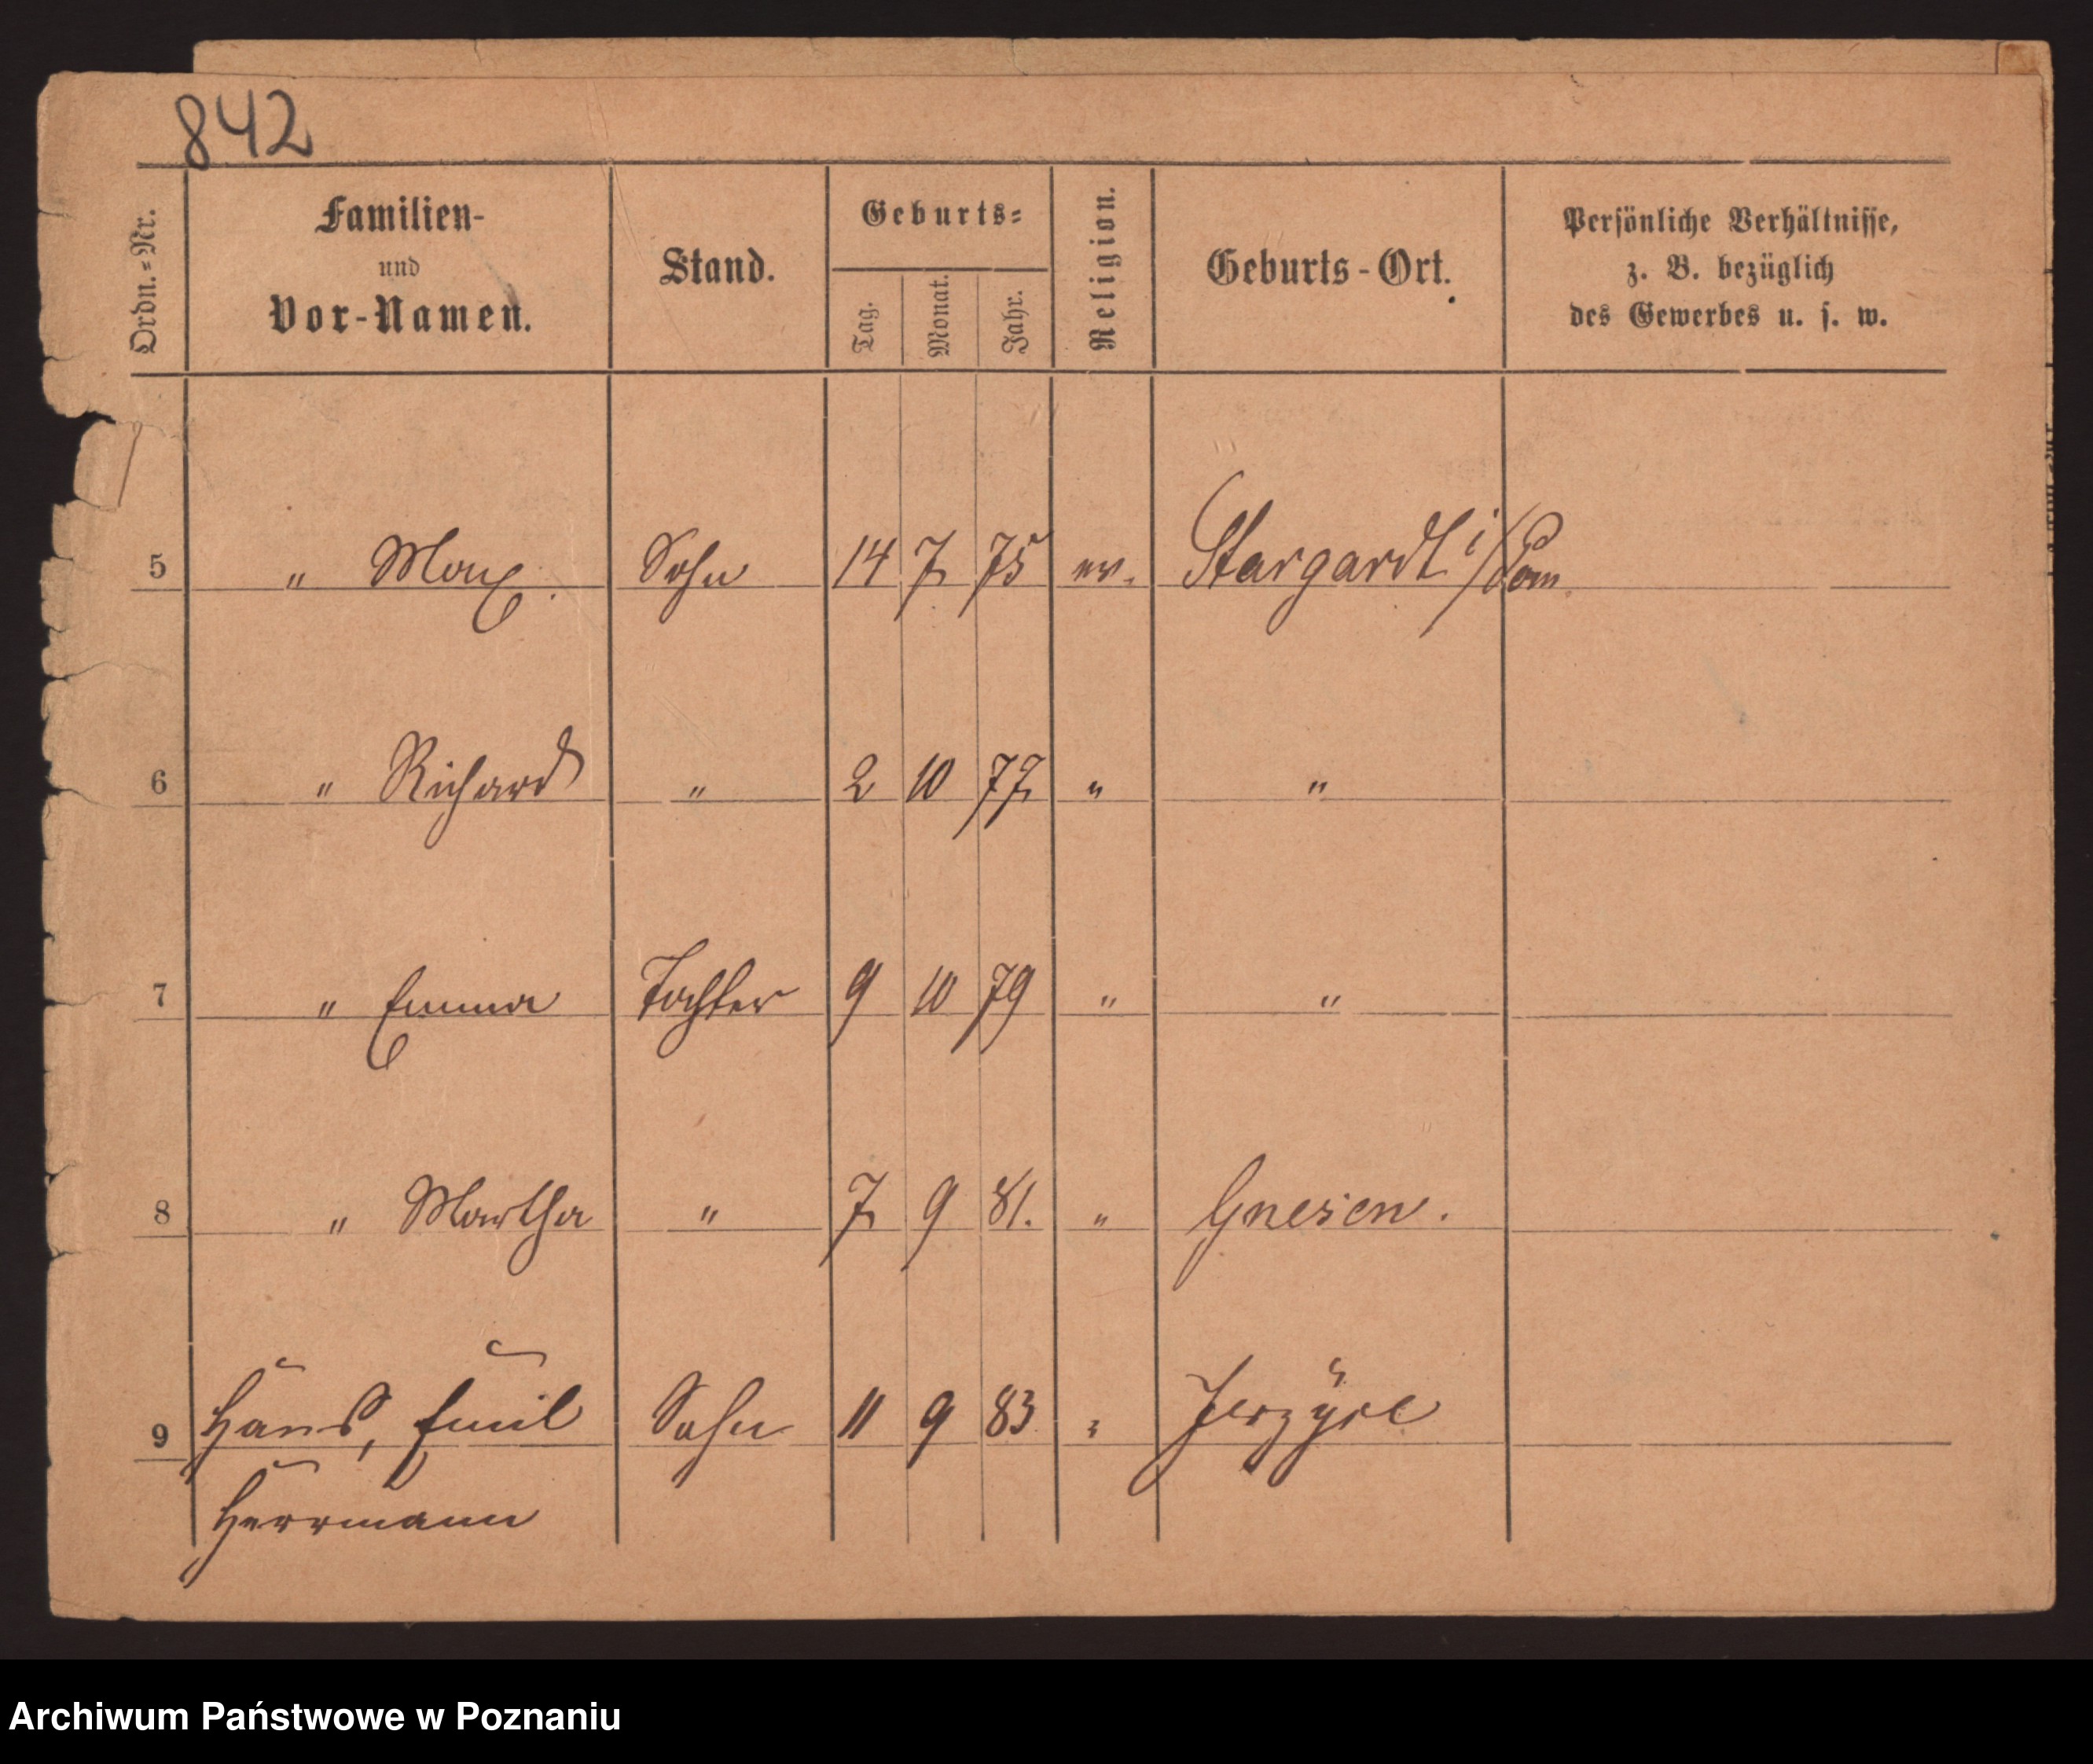 842
Ordn.-Nr.
Familien-
und
Vor-Namen.
Stand.
Geburts-
Tag.
Monat.
Jahr.
Religion.
Geburts-Ort.
Persönliche Verhältnisse,
z. B. bezüglich
des Gewerbes u. s. w.
5 " Max. Sohn 14 7 75 ev. Stargardt i/Pom.
6 " Richard " 2 10 77 " "
7 " Emma Tochter 9 10 79 " "
8 " Martha " 7 9 81. " Gnesen.
9 Hans, Emil Sohn 11 9 83 "
Herrmann
Archiwum Państwowe w Poznaniu